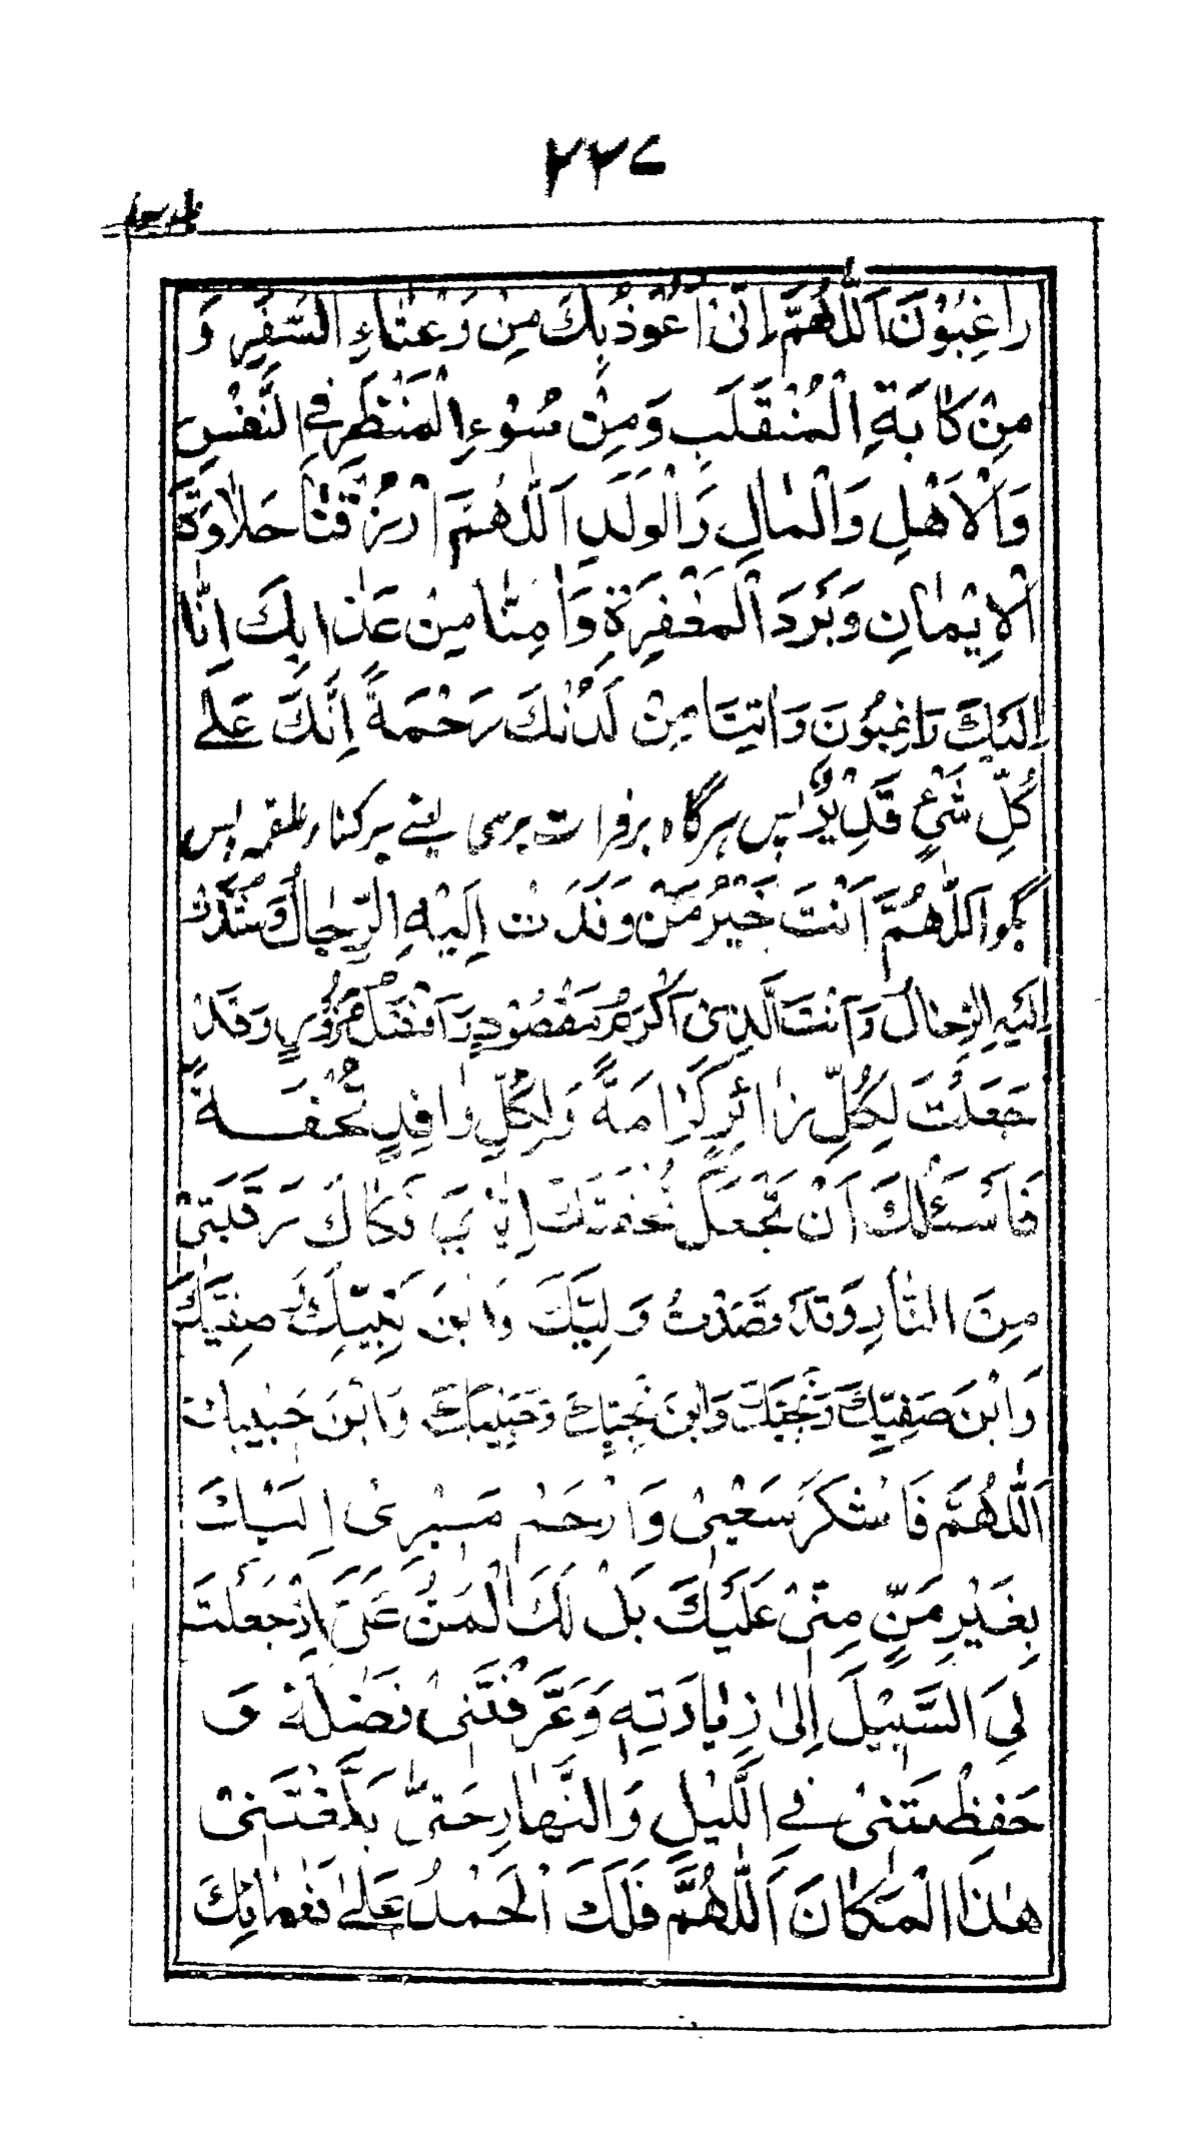 ٢٢٧
رَاغِبُوْنَ اَللّٰهُمَّ اِنّيْ اَعُوْذُ بِكَ مِنْ وَعْثَاءِ السَّفَرِ وَ
مِنْ كَابَةِ الْمُنْقَلَبِ وَمِنْ سُوْءِ الْمَنْظَرِ فِي النَّفْسِ
وَالْاَهْلِ وَالْمَالِ وَالْوَلَدِ اَللّٰهُمَّ ارْزُقْنَا حَلَاوَةَ
الْاِيْمَانِ وَبَرْدَ الْمَغْفِرَةِ وَاٰمِنَّا مِنْ عَذَابِكَ اِنَّا
اِلَيْكَ رَاغِبُوْنَ وَاٰتِنَا مِنْ لَدُنْكَ رَحْمَةً اِنَّكَ عَلٰى
كُلِّ شَيْءٍ قَدِيْرٌ پس هرگاه بفرات برسی یعنے بر کنار علقمه پس
بگو اَللّٰهُمَّ اَنْتَ خَيْرُ مَنْ وَفَدَتْ اِلَيْهِ الرِّجَالُ وَشُدَّتْ
اِلَيْهِ الرِّحَالُ وَاَنْتَ الَّذِيْ اَكْرَمُ مَقْصُوْدٍ وَاَفْضَلُ مَزُوْرٍ وَقَدْ
جَعَلْتَ لِكُلِّ زَائِرٍ كَرَامَةً وَلِكُلِّ وَافِدٍ تُحْفَةً
فَاَسْئَلُكَ اَنْ تَجْعَلَ تُحْفَتَكَ اِيَّايَ فَكَاكَ رَقَبَتِيْ
مِنَ النَّارِ وَقَدْ قَصَدْتُ وَلِيَّكَ وَابْنَ نَبِيِّكَ صَفِيَّكَ
وَابْنَ صَفِيِّكَ وَنَجِيَّكَ وَابْنَ نَجِيِّكَ وَحَبِيْبَكَ وَابْنَ حَبِيْبِكَ
اَللّٰهُمَّ فَاشْكُرْ سَعْيِيْ وَارْحَمْ مَسِيْرِيْ اِلَيْكَ
بِغَيْرِ مَنٍّ مِنّيْ عَلَيْكَ بَلْ لَكَ الْمَنُّ عَلَيَّ اِذْ جَعَلْتَ
لِيَ السَّبِيْلَ اِلٰى زِيَادَتِهِ وَعَرَّفْتَنِيْ فَضْلَهُ وَ
حَفِظْتَنِيْ فِي اللَّيْلِ وَالنَّهَارِ حَتّٰى بَلَّغْتَنِيْ
هٰذَا الْمَكَانَ اَللّٰهُمَّ فَلَكَ الْحَمْدُ عَلٰى نَعْمَائِكَ